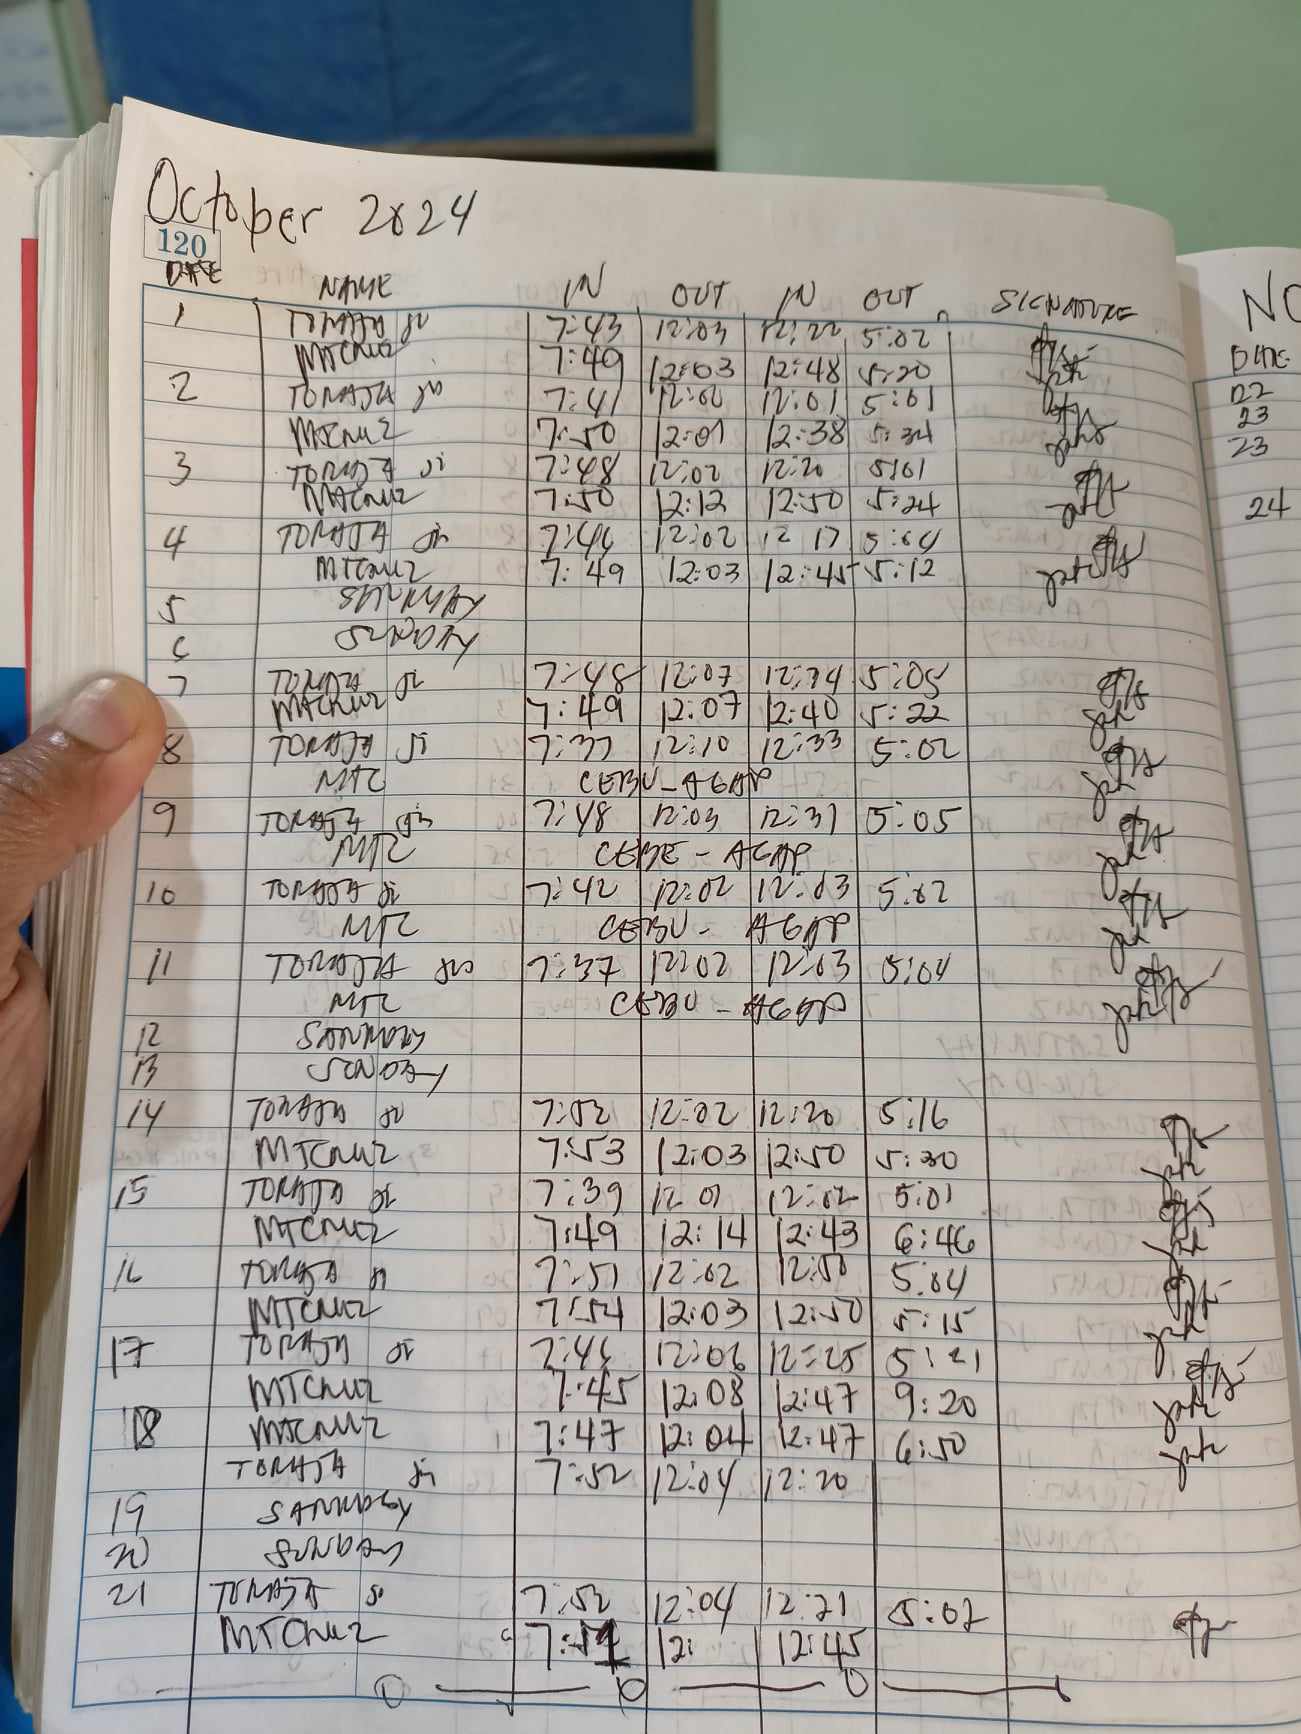 October 2024
120
DATE NAME IN OUT IN OUT SIGNATURE
1 TORAJA JR 7:43 12:03 12:22 5:02
MTCRUZ 7:49 12:03 12:48 5:20
2 TORAJA JR 7:41 12:00 12:01 5:01
MTCRUZ 7:50 12:01 12:38 5:34
3 TORAJA Jr 7:48 12:02 12:20 5:01
MTCRUZ 7:50 12:12 12:50 5:24
4 TORAJA Jr 7:46 12:02 12 17 5:04
MTCRUZ 7:49 12:03 12:45 5:12
5
6 SUNDAY
7 TORAJA Jr 7:48 12:07 12:34 5:05
MTCRUZ 7:49 12:07 12:40 5:22
8 TORAJA Jr 7:37 12:10 12:33 5:02
MTC CEBU-AGAP
9 TORAJA Jr 7:48 12:03 12:31 5:05
MTC CEBU - AGAP
10 TORAJA Jr 7:42 12:02 12:03 5:02
MTC CEBU - AGAP
11 TORAJA JR 7:37 12:02 12:03 5:04
MTC CEBU - AGAP
12
13 SUNDAY
14 TORAJA Jr 7:52 12:02 12:20 5:16
MTCRUZ 7:53 12:03 12:50 5:30
15 TORAJA Jr 7:39 12 01 12:02 5:01
MTCRUZ 7:49 12:14 12:43 6:46
16 TORAJA Jr 7:51 12:02 12:50 5:04
MTCRUZ 7:54 12:03 12:50 5:15
17 TORAJA Jr 7:46 12:06 12:25 5:21
MTCRUZ 7:45 12:08 12:47 9:20
18 MTCRUZ 7:47 12:04 12:47 6:50
TORAJA Jr 7:52 12:04 12:20
19
20 SUNDAY
21 TORAJA Jr 7:52 12:04 12:21 5:02
MTCRUZ 12: 12:45
NO
DATE
22
23
23
24